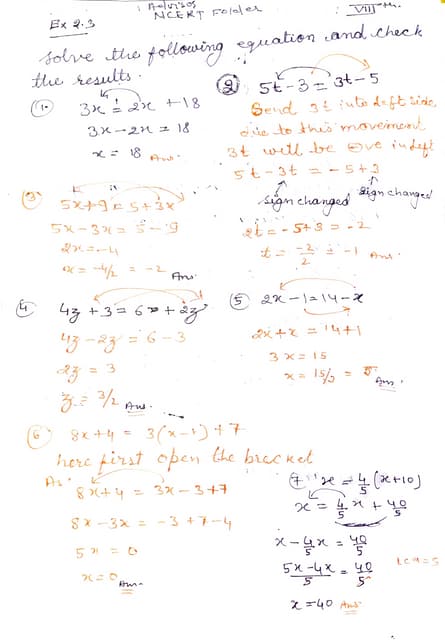 Ex 2.3
NCERT Folder
VIII th
Solve the following equation and check
the results.
① 3x = 2x + 18
3x - 2x = 18
x = 18 Ans.
② 5t - 3 = 3t - 5
Send 3t into left side
due to this movement
3t will be -ve in left
5t - 3t = -5 + 3
sign changed sign changed
2t = -5 + 3 = -2
t = -2/2 = -1 Ans.
③ 5x + 9 = 5 + 3x
5x - 3x = 5 - 9
2x = -4
x = -4/2 = -2
Ans.
④ 4z + 3 = 6 + 2z
4z - 2z = 6 - 3
2z = 3
z = 3/2 Ans.
⑤ 2x - 1 = 14 - x
2x + x = 14 + 1
3x = 15
x = 15/3 = 5
Ans.
⑥ 8x + 4 = 3(x - 1) + 7
here first open the bracket
8x + 4 = 3x - 3 + 7
8x - 3x = -3 + 7 - 4
5x = 0
x = 0 Ans.
7. x = 4/5 (x + 10)
x = 4/5 x + 40/5
x - 4/5 x = 40/5
5x - 4x/5 = 40/5 LCM = 5
x = 40 Ans